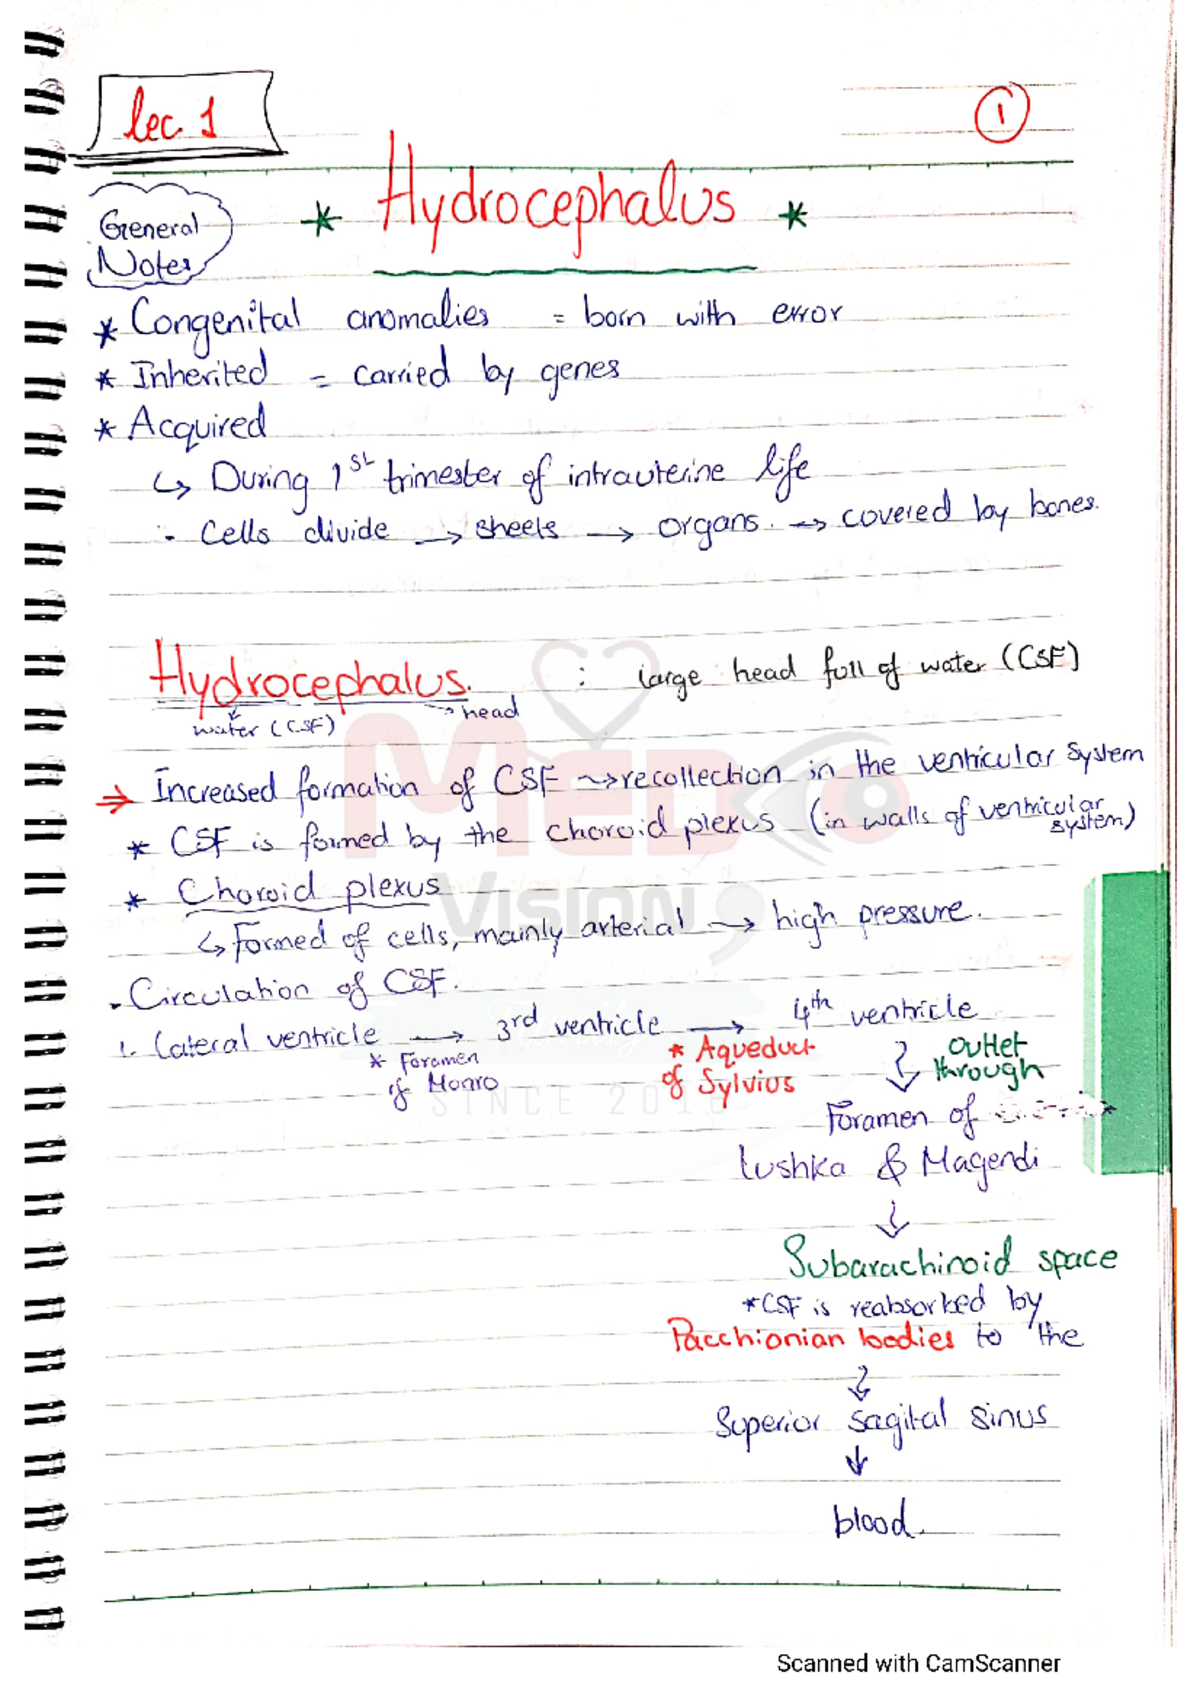 lec. 1
1
General
Notes
* Hydrocephalus *
* Congenital anomalies = born with error
* Inherited = carried by genes
* Acquired
↳ During 1st trimester of intrauterine life
- Cells divide → sheets → organs. → covered by bones.
Hydrocephalus. : large head full of water (CSF)
water (CSF) → head
→ Increased formation of CSF → recollection in the ventricular system
* CSF is formed by the choroid plexus (in walls of ventricular system)
* Choroid plexus
↳ Formed of cells, mainly arterial → high pressure.
. Circulation of CSF.
1. Lateral ventricle → 3rd ventricle → 4th ventricle
* Foramen of Monro
* Aqueduct of Sylvius
outlet through
Foramen of
lushka & Magendi
Subarachinoid space
*CSF is reabsorbed by
Pacchionian bodies to the
Superior sagital sinus
blood.
MED
VISION
SINCE 2018
Scanned with CamScanner